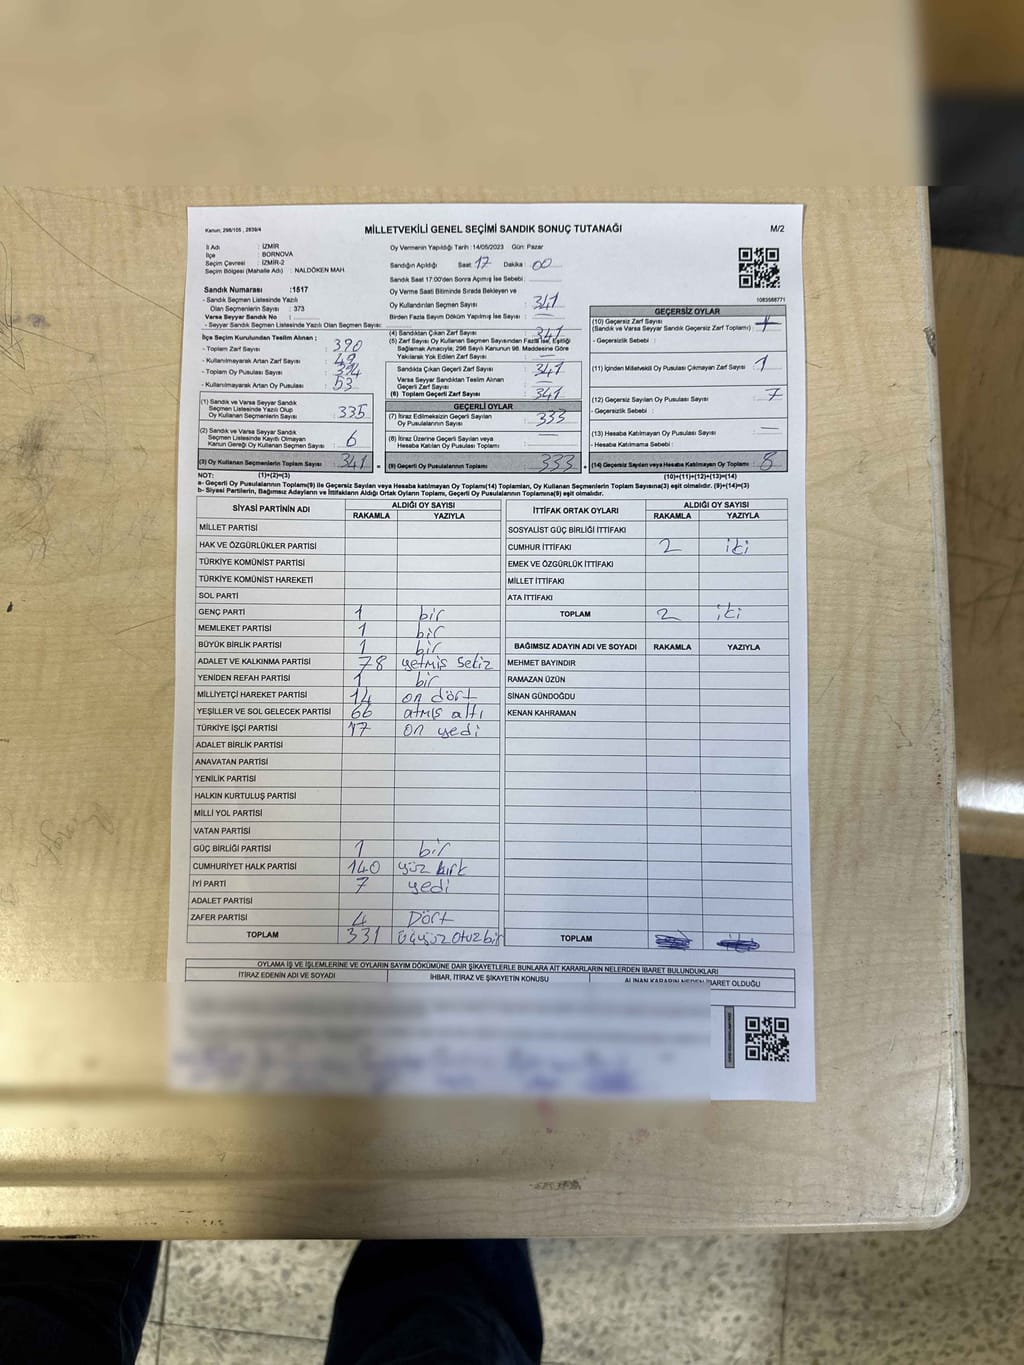 Kanun; 298/105 , 2839/4
MİLLETVEKİLİ GENEL SEÇİMİ SANDIK SONUÇ TUTANAĞI
M/2
İl Adı : İZMİR
İlçe : BORNOVA
Seçim Çevresi : İZMİR-2
Seçim Bölgesi (Mahalle Adı) : NALDÖKEN MAH.
Sandık Numarası :1517
- Sandık Seçmen Listesinde Yazılı
Olan Seçmenlerin Sayısı : 373
Varsa Seyyar Sandık No :
- Seyyar Sandık Seçmen Listesinde Yazılı Olan Seçmen Sayısı:
Oy Vermenin Yapıldığı Tarih :14/05/2023 Gün: Pazar
Sandığın Açıldığı Saat: 17 Dakika : 00
Sandık Saat 17:00'den Sonra Açılmış İse Sebebi :
Oy Verme Saati Bitiminde Sırada Bekleyen ve
Oy Kullandırılan Seçmen Sayısı : 341
Birden Fazla Sayım Döküm Yapılmış İse Sayısı : —
1083588771
İlçe Seçim Kurulundan Teslim Alınan ;
- Toplam Zarf Sayısı : 390
- Kullanılmayarak Artan Zarf Sayısı : 49
- Toplam Oy Pusulası Sayısı : 394
- Kullanılmayarak Artan Oy Pusulası : 53
(1) Sandık ve Varsa Seyyar Sandık
Seçmen Listesinde Yazılı Olup
Oy Kullanan Seçmenlerin Sayısı : 335
(2) Sandık ve Varsa Seyyar Sandık
Seçmen Listesinde Kayıtlı Olmayan
Kanun Gereği Oy Kullanan Seçmen Sayısı : 6
(3) Oy Kullanan Seçmenlerin Toplam Sayısı : 341
(1)+(2)=(3)
(4) Sandıktan Çıkan Zarf Sayısı : 341
(5) Zarf Sayısı Oy Kullanan Seçmen Sayısından Fazla İse, Eşitliği
Sağlamak Amacıyla; 298 Sayılı Kanunun 98. Maddesine Göre
Yakılarak Yok Edilen Zarf Sayısı : —
Sandıkta Çıkan Geçerli Zarf Sayısı : 341
Varsa Seyyar Sandıktan Teslim Alınan
Geçerli Zarf Sayısı : —
(6) Toplam Geçerli Zarf Sayısı : 341
GEÇERLİ OYLAR
(7) İtiraz Edilmeksizin Geçerli Sayılan
Oy Pusulasının Sayısı : 333
(8) İtiraz Üzerine Geçerli Sayılan veya
Hesaba Katılan Oy Pusulası Toplamı : —
(9) Geçerli Oy Pusulalarının Toplamı : 333
GEÇERSİZ OYLAR
(10) Geçersiz Zarf Sayısı
(Sandık ve Varsa Seyyar Sandık Geçersiz Zarf Toplamı) :
- Geçersizlik Sebebi :
(11) İçinden Milletvekili Oy Pusulası Çıkmayan Zarf Sayısı : 1
(12) Geçersiz Sayılan Oy Pusulası Sayısı : 7
- Geçersizlik Sebebi :
(13) Hesaba Katılmayan Oy Pusulası Sayısı : —
- Hesaba Katılmama Sebebi :
(14) Geçersiz Sayılan veya Hesaba Katılmayan Oy Toplamı : 8
(10)+(11)+(12)+(13)=(14)
NOT:
a- Geçerli Oy Pusulalarının Toplamı(9) ile Geçersiz Sayılan veya Hesaba katılmayan Oy Toplamı(14) Toplamları, Oy Kullanan Seçmenlerin Toplam Sayısına(3) eşit olmalıdır. (9)+(14)=(3)
b- Siyasi Partilerin, Bağımsız Adayların ve İttifakların Aldığı Ortak Oyların Toplamı, Geçerli Oy Pusulalarının Toplamına(9) eşit olmalıdır.
SİYASİ PARTİNİN ADI ALDIĞI OY SAYISI
RAKAMLA YAZIYLA
MİLLET PARTİSİ
HAK VE ÖZGÜRLÜKLER PARTİSİ
TÜRKİYE KOMÜNİST PARTİSİ
TÜRKİYE KOMÜNİST HAREKETİ
SOL PARTİ
GENÇ PARTİ 1 bir
MEMLEKET PARTİSİ 1 bir
BÜYÜK BİRLİK PARTİSİ 1 bir
ADALET VE KALKINMA PARTİSİ 78 yetmiş sekiz
YENİDEN REFAH PARTİSİ 1 bir
MİLLİYETÇİ HAREKET PARTİSİ 14 on dört
YEŞİLLER VE SOL GELECEK PARTİSİ 66 atmış altı
TÜRKİYE İŞÇİ PARTİSİ 17 on yedi
ADALET BİRLİK PARTİSİ
ANAVATAN PARTİSİ
YENİLİK PARTİSİ
HALKIN KURTULUŞ PARTİSİ
MİLLİ YOL PARTİSİ
VATAN PARTİSİ
GÜÇ BİRLİĞİ PARTİSİ 1 bir
CUMHURİYET HALK PARTİSİ 140 yüz kırk
İYİ PARTİ 7 yedi
ADALET PARTİSİ
ZAFER PARTİSİ 4 Dört
TOPLAM 331 üçyüz otuz bir
İTTİFAK ORTAK OYLARI ALDIĞI OY SAYISI
RAKAMLA YAZIYLA
SOSYALİST GÜÇ BİRLİĞİ İTTİFAKI
CUMHUR İTTİFAKI 2 iki
EMEK VE ÖZGÜRLÜK İTTİFAKI
MİLLET İTTİFAKI
ATA İTTİFAKI
TOPLAM 2 iki
BAĞIMSIZ ADAYIN ADI VE SOYADI RAKAMLA YAZIYLA
MEHMET BAYINDIR
RAMAZAN ÜZÜN
SİNAN GÜNDOĞDU
KENAN KAHRAMAN
TOPLAM
OYLAMA İŞ VE İŞLEMLERİNE VE OYLARIN SAYIM DÖKÜMÜNE DAİR ŞİKAYETLERLE BUNLARA AİT KARARLARIN NELERDEN İBARET BULUNDUKLARI
İTİRAZ EDENİN ADI VE SOYADI İHBAR, İTİRAZ VE ŞİKAYETİN KONUSU ALINAN KARARIN NEDEN İBARET OLDUĞU